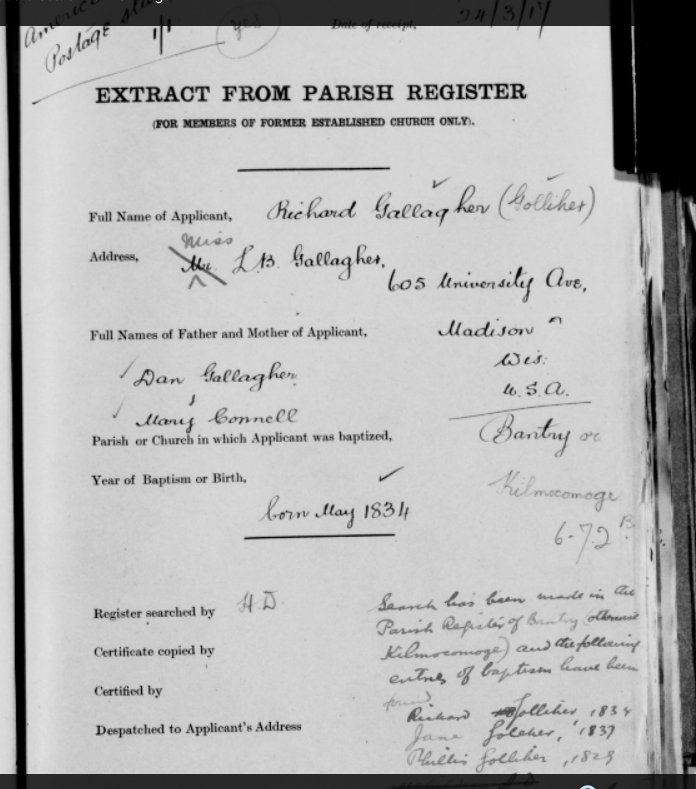 Postage
1/1
yes
Date of receipt,
24/3/17
EXTRACT FROM PARISH REGISTER
(FOR MEMBERS OF FORMER ESTABLISHED CHURCH ONLY).
Full Name of Applicant, Richard Gallagher (Golliher)
Miss
Address, Mr. L.B. Gallagher,
605 University Ave,
Full Names of Father and Mother of Applicant, Madison
Wis.
Dan Gallagher
U.S.A.
Mary Connell
Parish or Church in which Applicant was baptized, (Bantry or
Year of Baptism or Birth, Kilmocomoge
born May 1834
6-7.2 B.
Register searched by H.D.
Search has been made in the
Parish Register of Bantry (otherwise
Certificate copied by Kilmocomoge) and the following
entries of baptism have been
Certified by
found
Richard Golliher, 1834
Despatched to Applicant's Address
Jane Goleher, 1837
Phillis Golliher, 1829